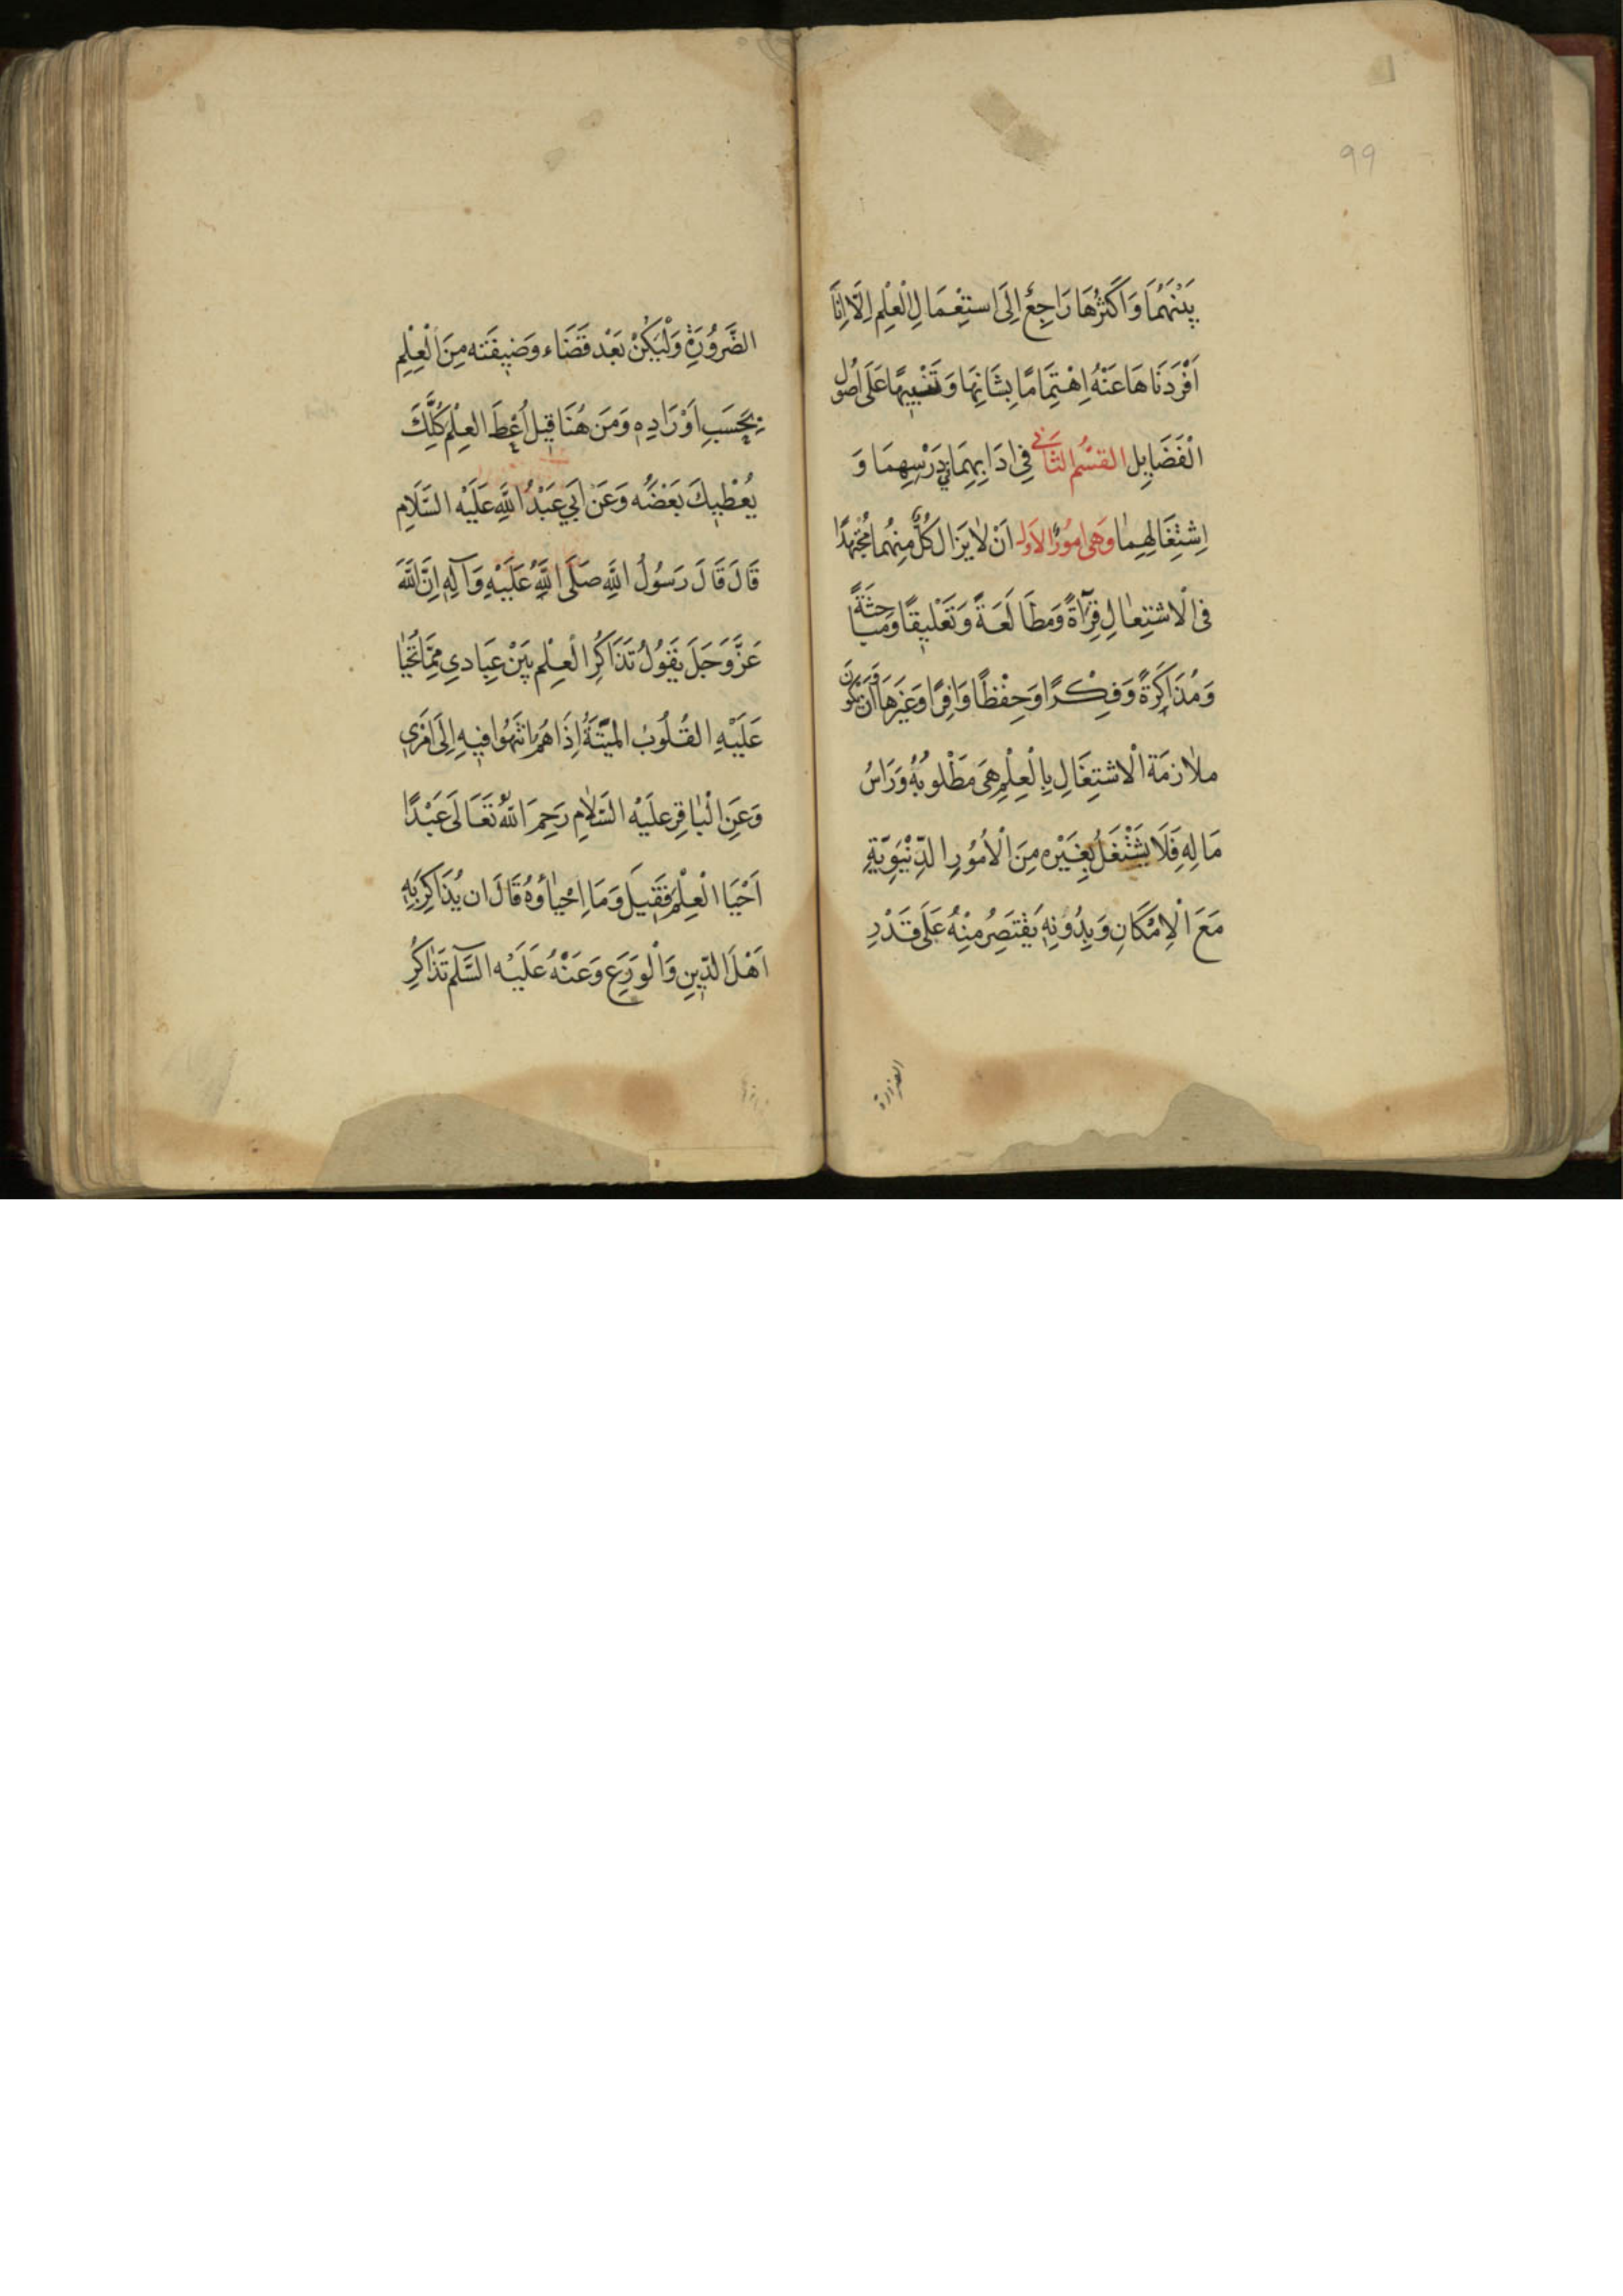 99
بَيْنَهُمَا وَاَكْثَرُهَا رَاجِعٌ اِلَى اسْتِعْمَالِ الْعِلْمِ اِلَّا اِنَّا
اَفْرَدْنَاهَا عَنْهُ اِهْتِمَامًا بِشَانِهَا وَتَنْبِيهًا عَلَى اُصُولِ
الْفَضَايِلِ القِسْمُ الثَّانِي فِي ادَابِهِمَا فِي دَرْسِهِمَا وَ
اِشْتِغَالِهِمَا وَهِيَ امُورٌ الاَوَلُ اَنْ لَا يَزَالَ كُلٌّ مِنْهُمَا مُجْتَهِدًا
فِي الْاشْتِغَالِ قِرَآءَةً وَمُطَالَعَةً وَتَعْلِيقًا وَمُبَاحَثَةً
وَمُذَاكَرَةً وَفِكْرًا وَحِفْظًا وَافِرًا وَغَيْرَهَا وَاَنْ تَكُونَ
مُلَازَمَة الْاشْتِغَالِ بِالْعِلْمِ هِيَ مَطْلُوبُهُ وَرَاسُ
مَالِهِ فَلَا يَشْتَغِلُ بِغَيْرِهِ مِنَ الْاُمُورِ الدِّنْيَوِيَّةِ
مَعَ الْاِمْكَانِ وَبِدُونِهِ يَقْتَصِرُ مِنْهُ عَلَى قَدْرِ
الضَّرُورَةِ
الضَّرُورَةِ وَلْيَكُنْ بَعْدَ قَضَاءِ وَضِيفَتِهِ مِنَ الْعِلْمِ
بِحَسَبِ اَوْرَادِهِ وَمَنْ هُنَا قِيلَ اُعْطِ العِلْمَ كُلَّكَ
يُعْطِيكَ بَعْضُهُ وَعَنْ اَبِي عَبْدُ اللَّهِ عَلَيْهِ السَّلَامِ
قَالَ قَالَ رَسُولُ اللَّهِ صَلَّى اللَّهُ عَلَيْهِ وَآلِهِ اِنَّ اللَّهَ
عَزَّ وَجَلَ يَقُولُ تَذَاكُرُ الْعِلْمِ بَيْنَ عِبَادِي مِمَّا تُحْيَا
عَلَيْهِ القُلُوبُ الْمَيِّتَةُ اِذَا هُمْ انْتَهُوا فِيهِ اِلَى اَمْرِي
وَعَنِ الْبَاقِرِ عَلَيْهِ السَّلَامِ رَحِمَ اللَّهُ تَعَالَى عَبْدًا
اَحْيَا الْعِلْمَ فَقِيلَ وَمَا اِحْيَاؤُهُ قَالَ ان يُذَاكِرَ بِهِ
اَهْلَ الدِّينِ وَالْوَرَعِ وَعَنْهُ عَلَيْهِ السَّلَم تَذَاكُرُ